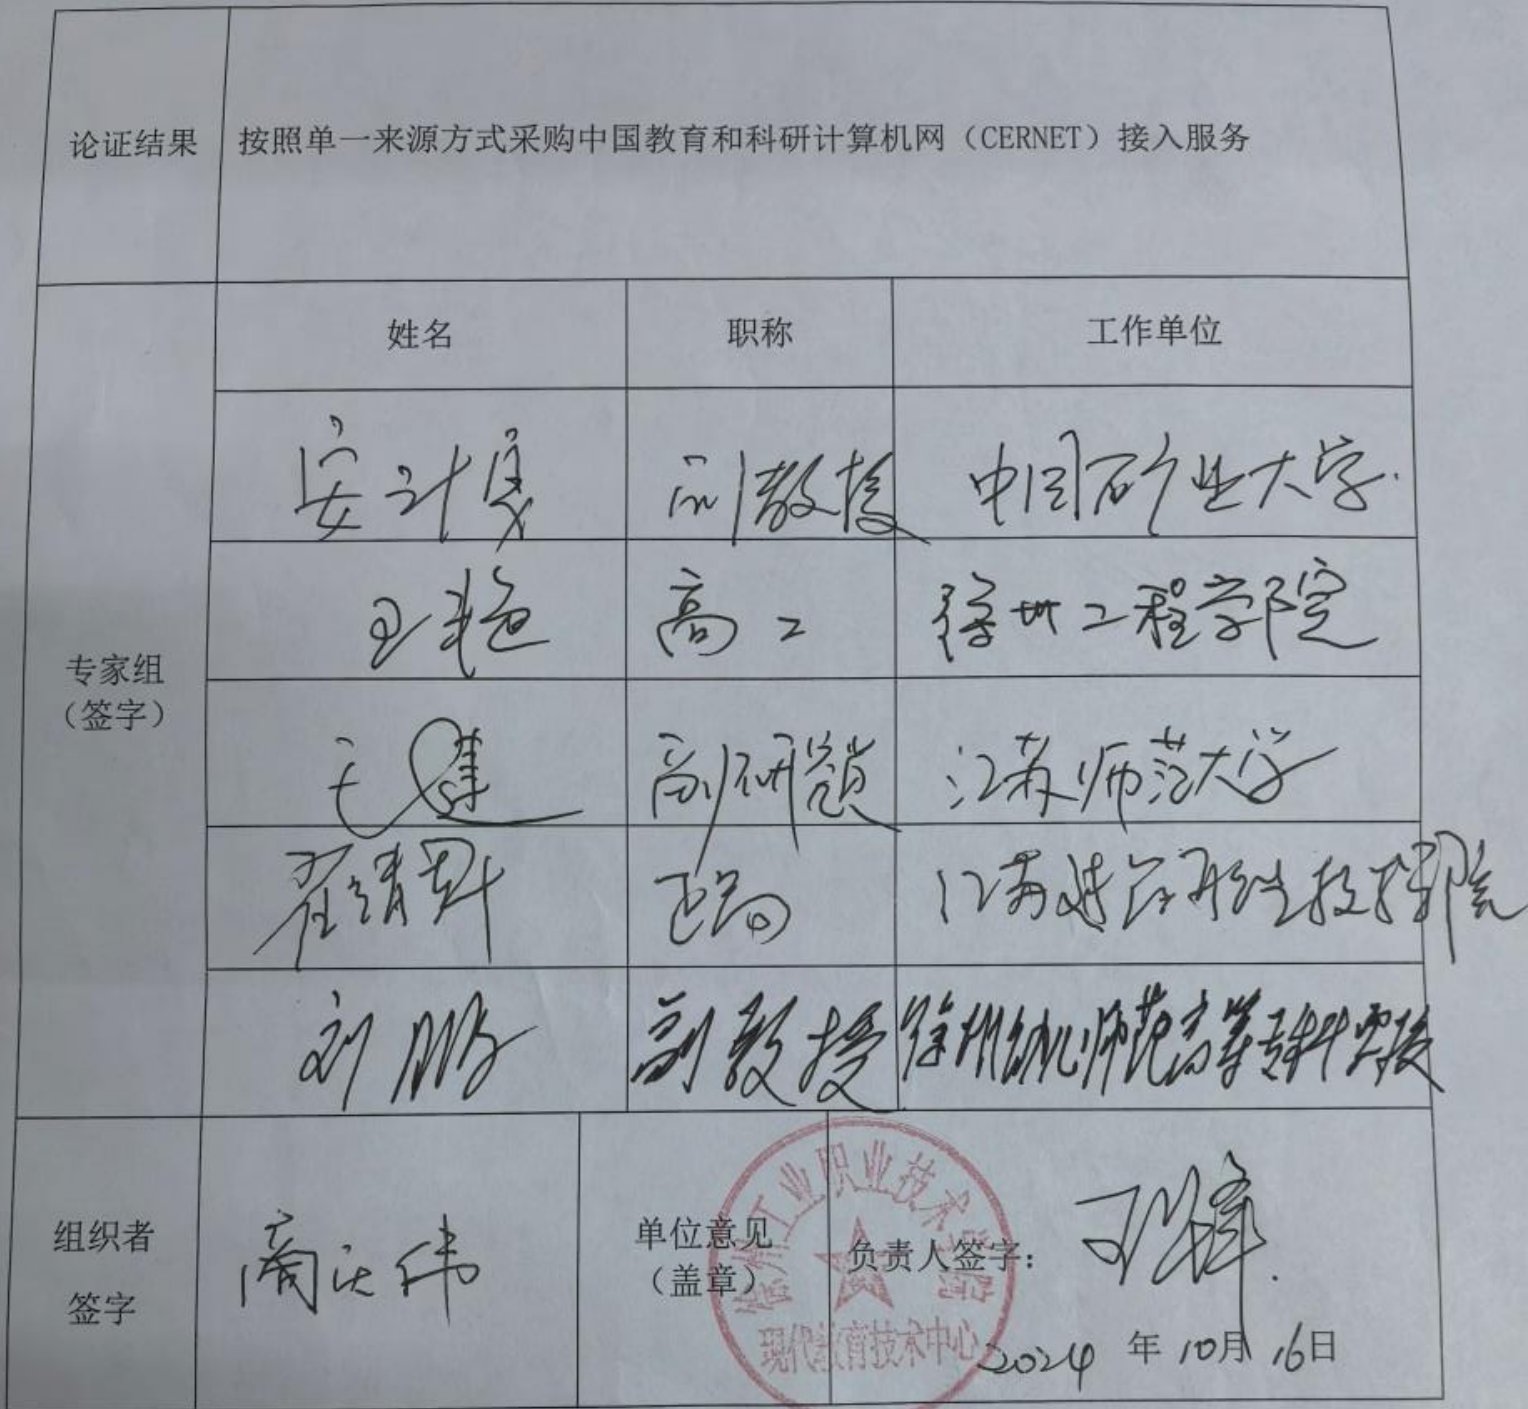 论证结果
按照单一来源方式采购中国教育和科研计算机网（CERNET）接入服务
专家组
（签字）
姓名 职称 工作单位
安计 副教授 中国矿业大学
王艳 高工 徐州工程学院
王建 副研 江苏师范大学
翟靖 正高 江苏建筑职业技术学院
刘鹏 副教授 徐州幼儿师范高等专科学校
组织者
签字
商 伟
单位意见
（盖章）
徐州工业职业技术学院
现代教育技术中心
负责人签字：
2024 年 10月 16日